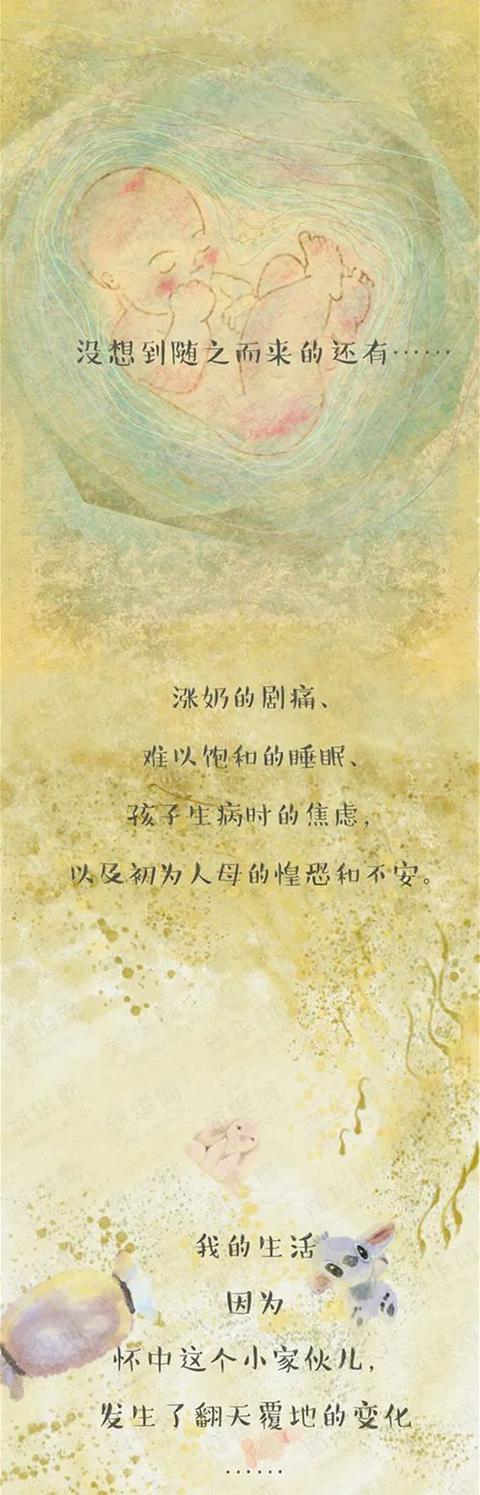 没想到随之而来的还有……
涨奶的剧痛、
难以饱和的睡眠、
孩子生病时的焦虑，
以及初为人母的惶恐和不安。
我的生活
因为
怀中这个小家伙儿，
发生了翻天覆地的变化
……